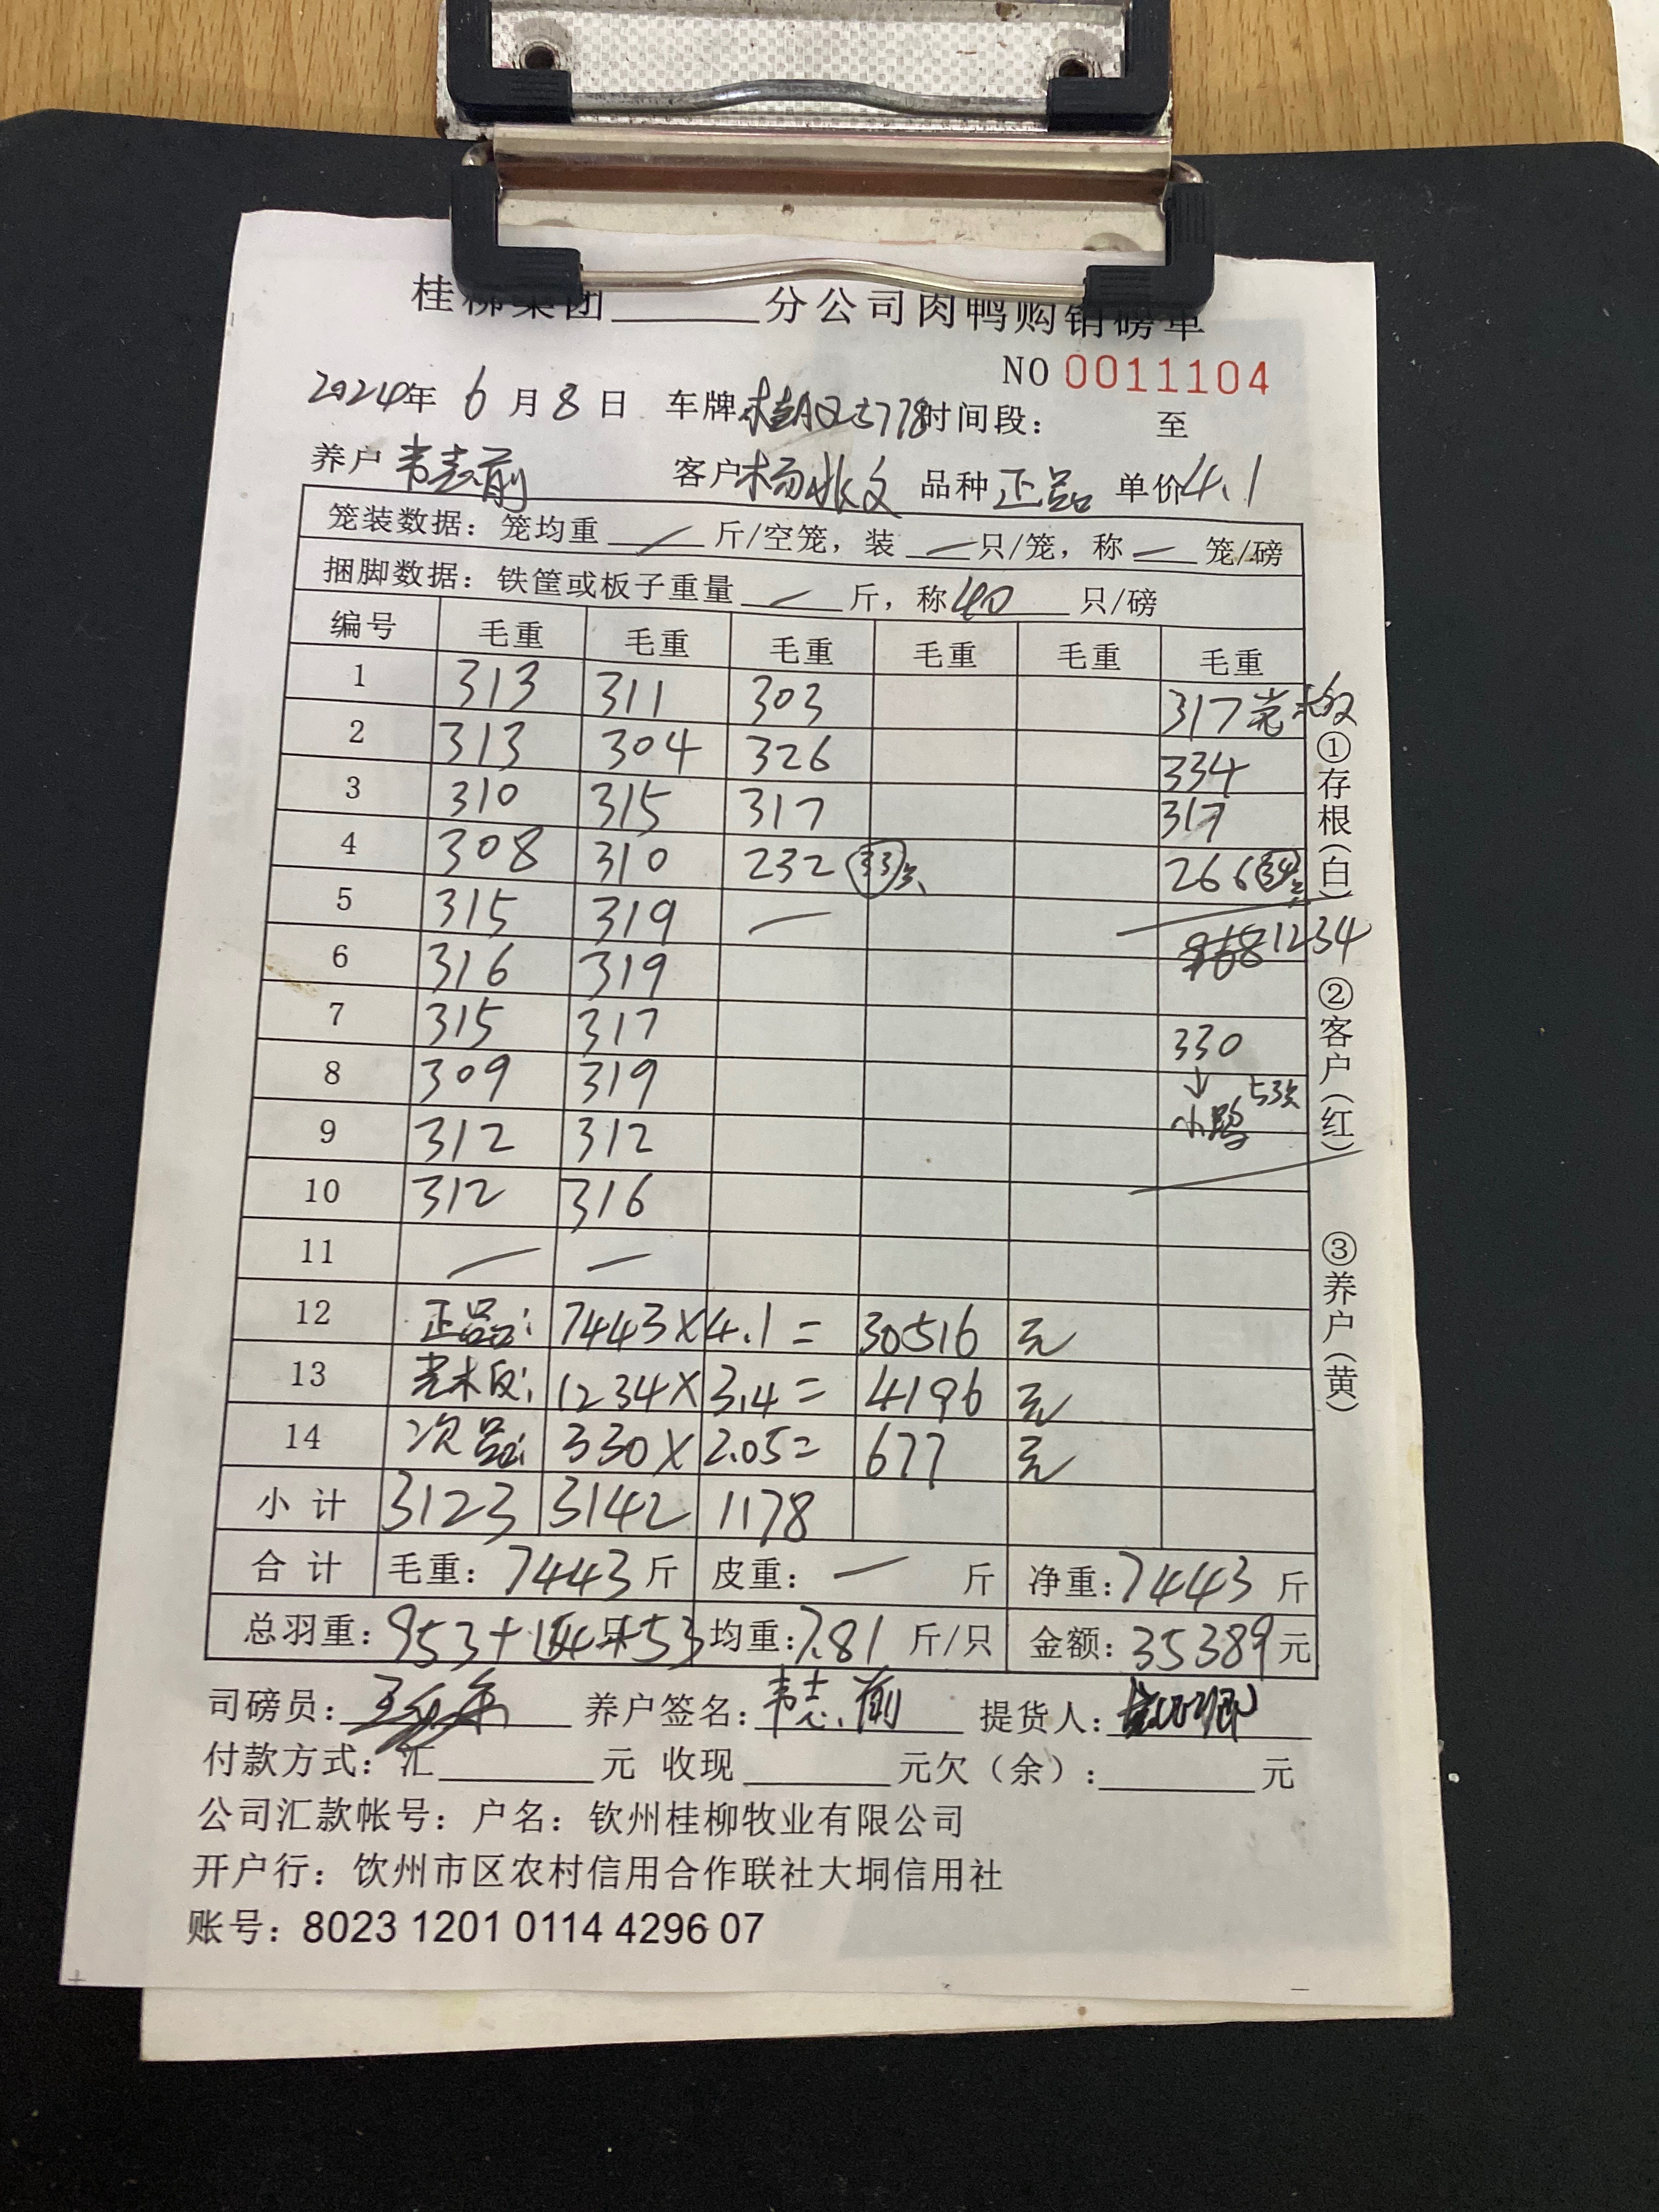 桂柳集团______分公司肉鸭购销磅单
NO 0011104
2024年 6 月 8 日 车牌 时间段: 至
养户 韦志前 客户 杨 文 品种 正品 单价 4.1
笼装数据: 笼均重 / 斤/空笼, 装 — 只/笼, 称 — 笼/磅
捆脚数据: 铁筐或板子重量 — 斤, 称 40 只/磅
编号 毛重 毛重 毛重 毛重 毛重 毛重
1 313 311 303 317
2 313 304 326 334
3 310 315 317 317
4 308 310 232 33只 266 34只
5 315 319 — 1234
6 316 319
7 315 317 330
8 309 319 ↓ 53只
9 312 312 小鸭
10 312 316
11 — —
12 正品: 7443×4.1= 30516 元
13 1234×3.4= 4196 元
14 次品: 330×2.05= 677 元
小计 3123 3142 1178
合计 毛重: 7443 斤 皮重: — 斤 净重: 7443 斤
总羽重: 953+ +53 均重: 7.81 斤/只 金额: 35389 元
司磅员: 养户签名: 韦志前 提货人:
付款方式: 汇______元 收现______元欠(余):______元
公司汇款帐号: 户名: 钦州桂柳牧业有限公司
开户行: 钦州市区农村信用合作联社大垌信用社
账号: 8023 1201 0114 4296 07
①存根(白)
②客户(红)
③养户(黄)